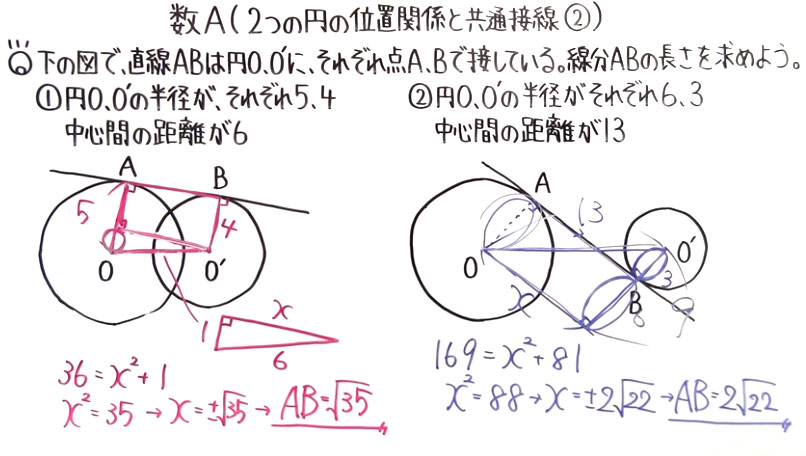 数A(2つの円の位置関係と共通接線②)
◎下の図で、直線ABは円O、O'に、それぞれ点A、Bで接している。線分ABの長さを求めよう。
①円O、O'の半径が、それぞれ5、4
中心間の距離が6
A
B
5
4
O
O'
1
x
6
36=x²+1
x²=35→x=±√35→AB=√35
②円O、O'の半径がそれぞれ6、3
中心間の距離が13
A
13
O
O'
x
3
B
6
9
169=x²+81
x²=88→x=±2√22→AB=2√22